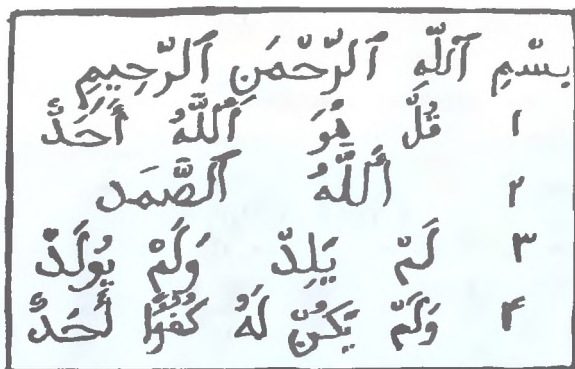 بِسْمِ ٱللَّهِ ٱلرَّحْمَنِ ٱلرَّحِيمِ
١ قُلْ هُوَ ٱللَّهُ أَحَدٌ
٢ ٱللَّهُ ٱلصَّمَد
٣ لَمْ يَلِدْ وَلَمْ يُولَدْ
۴ وَلَمْ يَكُنْ لَهُ كُفُوًا أَحَدٌ